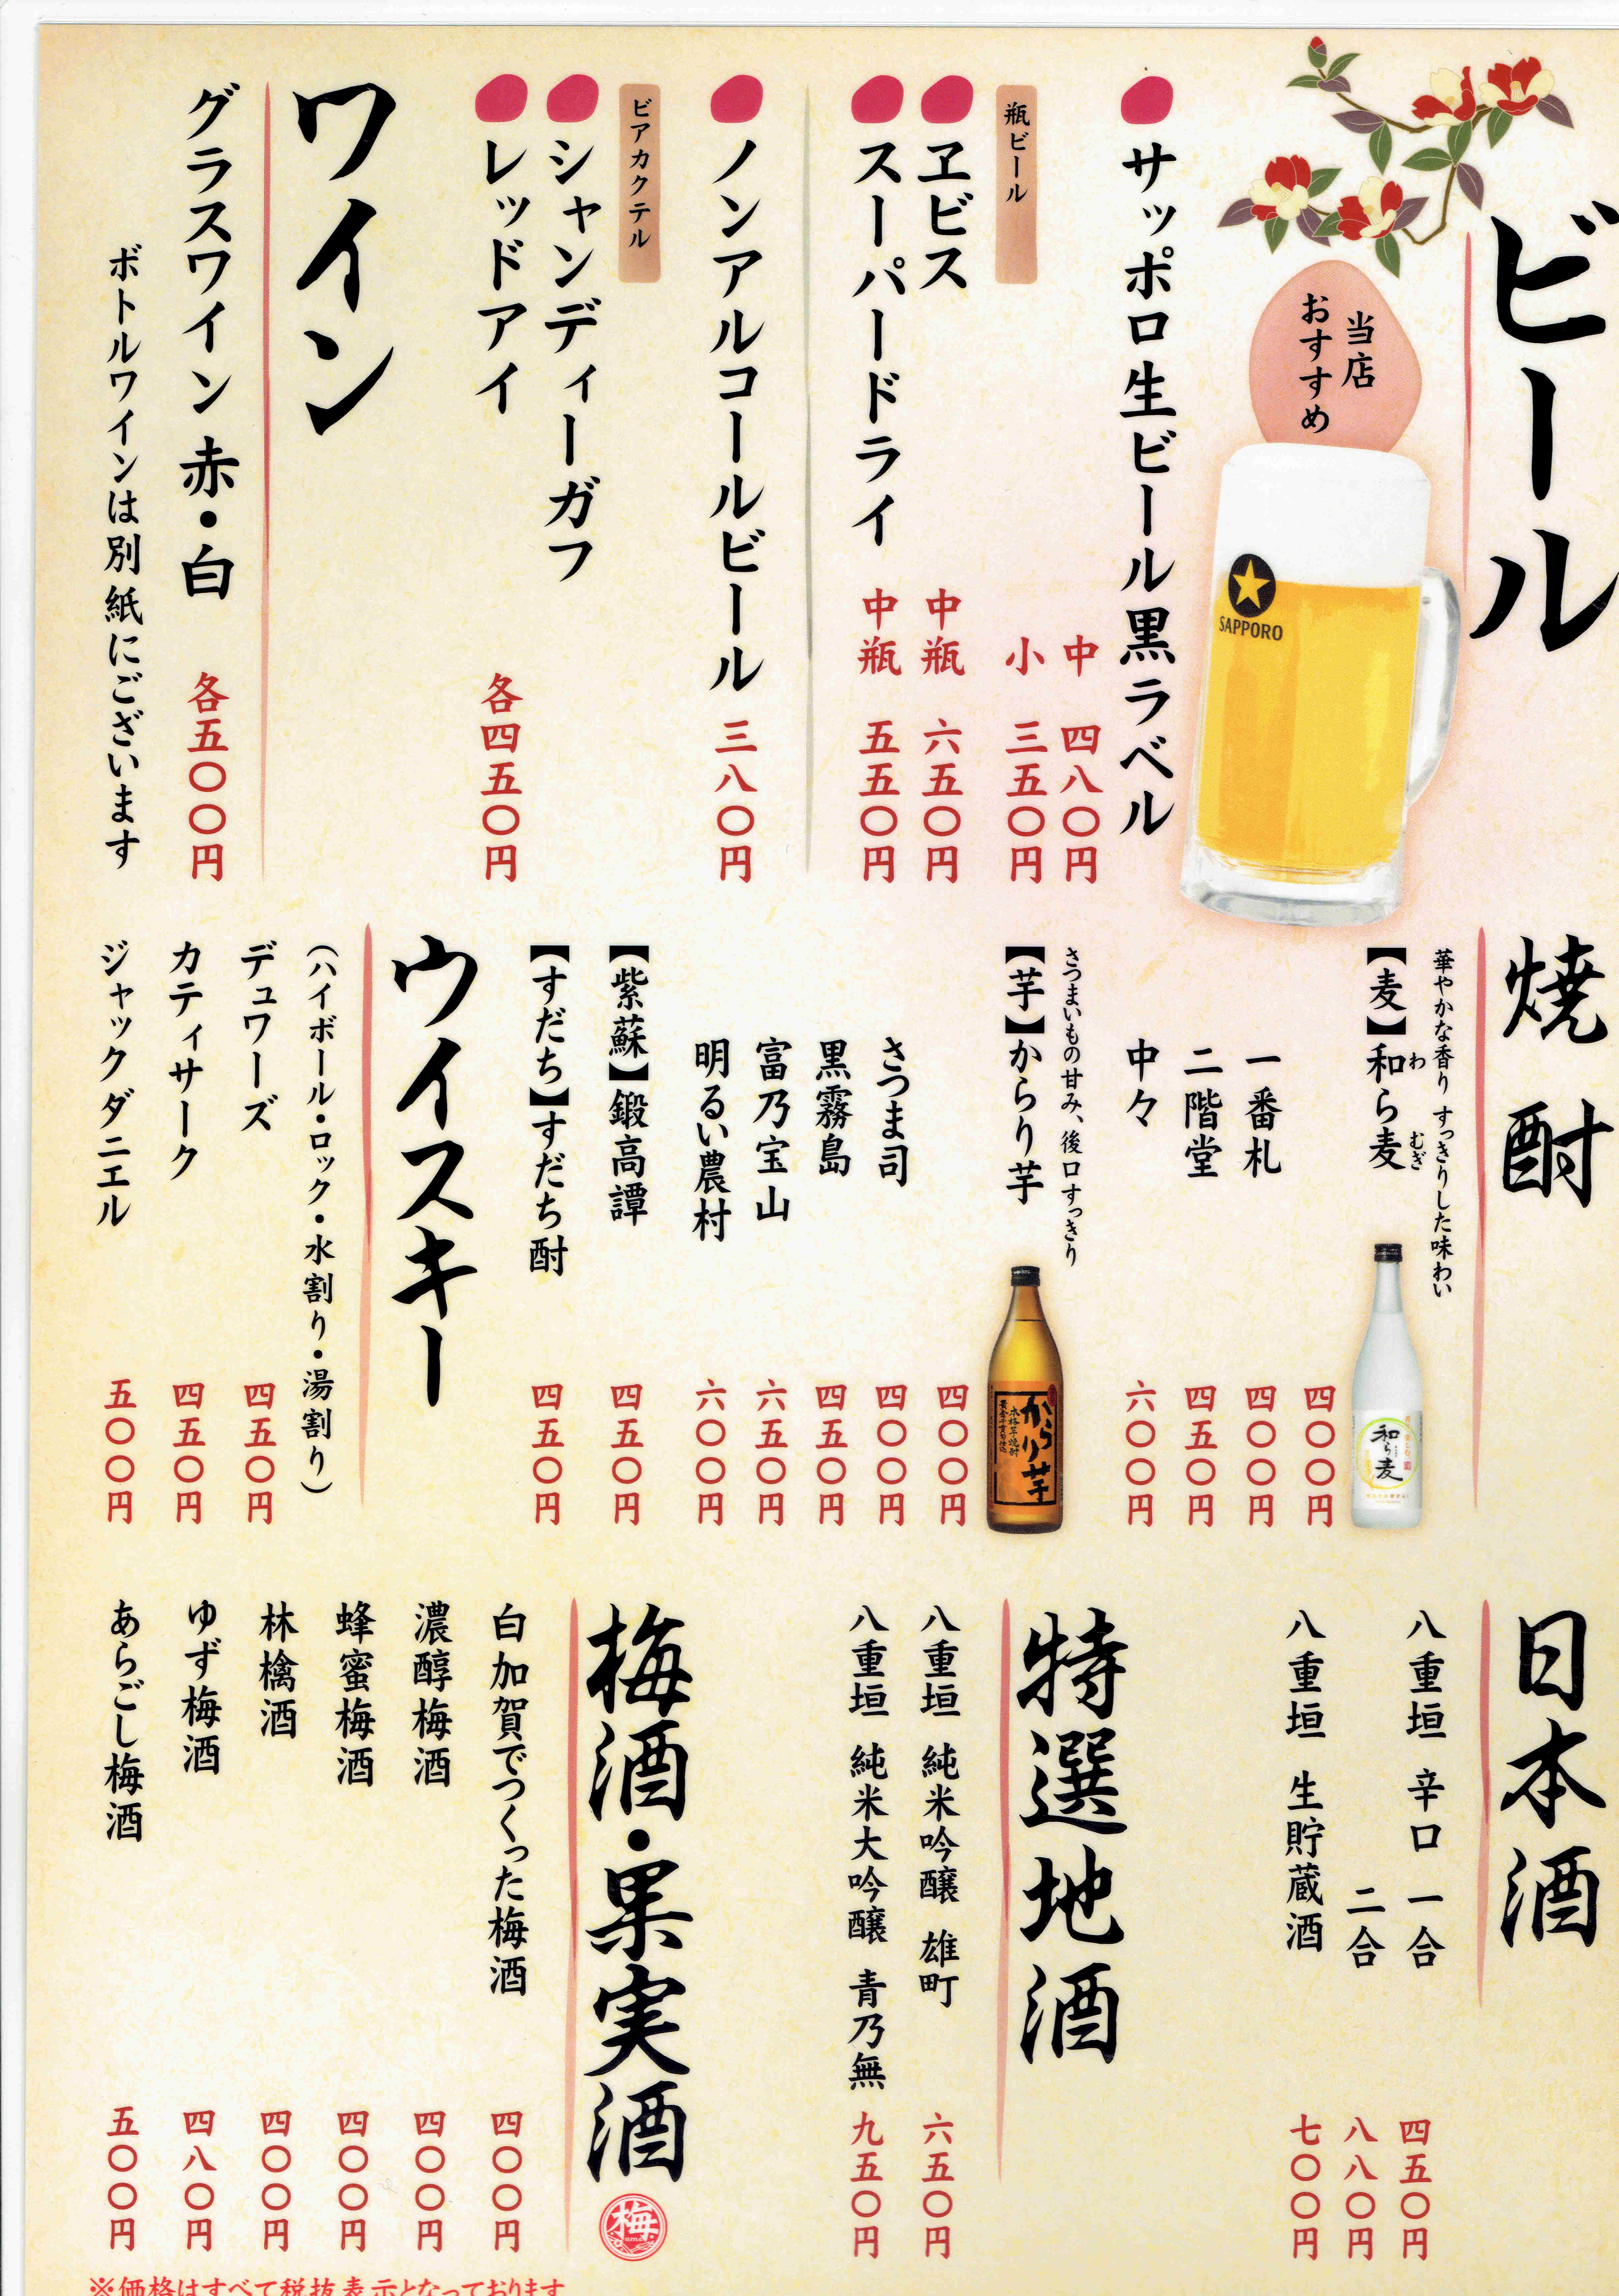 ビール
当店
おすすめ
SAPPORO
サッポロ生ビール黒ラベル
中 四八〇円
小 三五〇円
瓶ビール
ヱビス 中瓶 六五〇円
スーパードライ 中瓶 五五〇円
ノンアルコールビール 三八〇円
ビアカクテル
シャンディーガフ
レッドアイ 各四五〇円
ワイン
グラスワイン 赤・白 各五〇〇円
ボトルワインは別紙にございます
焼酎
華やかな香り すっきりした味わい
【麦】和ら麦 四〇〇円
わ むぎ
和ら麦
一番札 四〇〇円
二階堂 四五〇円
中々 六〇〇円
さつまいもの甘み、後口すっきり
【芋】からり芋 四〇〇円
からり芋
本格芋焼酎
さつま司 四〇〇円
黒霧島 四五〇円
富乃宝山 六五〇円
明るい農村 六〇〇円
【紫蘇】鍛高譚 四五〇円
【すだち】すだち酎 四五〇円
ウイスキー
（ハイボール・ロック・水割り・湯割り）
デュワーズ 四五〇円
カティサーク 四五〇円
ジャックダニエル 五〇〇円
日本酒
八重垣 辛口 一合 四五〇円
二合 八八〇円
八重垣 生貯蔵酒 七〇〇円
特選地酒
八重垣 純米吟醸 雄町 六五〇円
八重垣 純米大吟醸 青乃無 九五〇円
梅酒・果実酒
梅
白加賀でつくった梅酒 四〇〇円
濃醇梅酒 四〇〇円
蜂蜜梅酒 四〇〇円
林檎酒 四〇〇円
ゆず梅酒 四八〇円
あらごし梅酒 五〇〇円
※価格はすべて税抜表示となっております